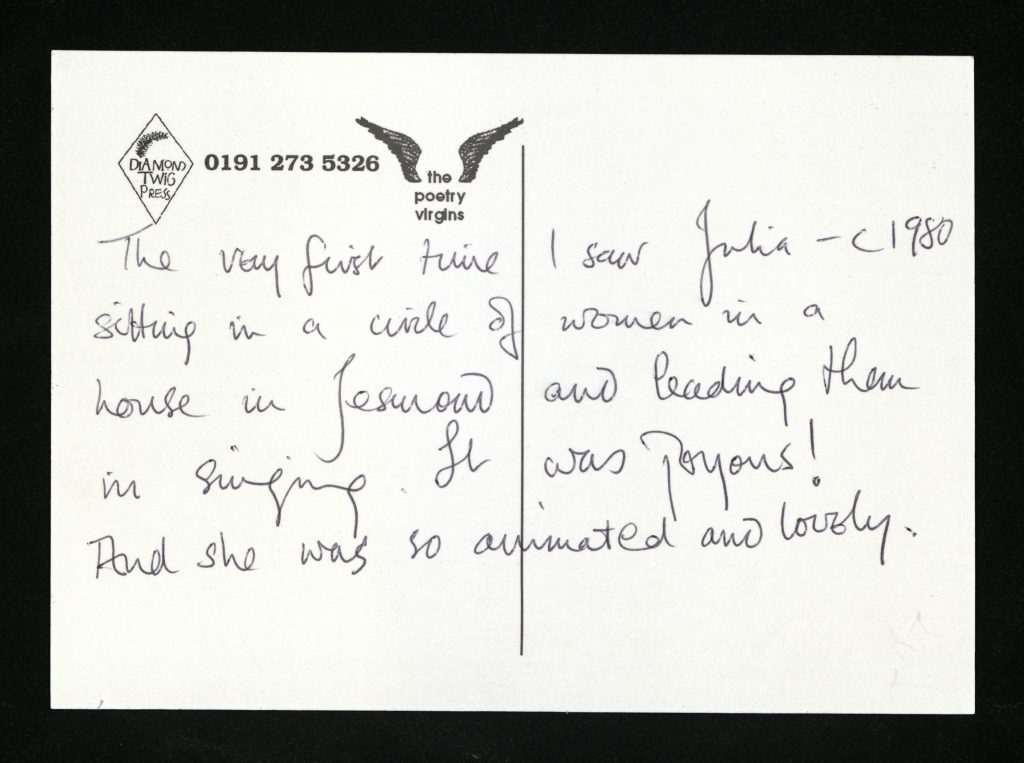 DIAMOND
TWIG
PRESS
0191 273 5326
the
poetry
virgins
The very first time I saw Julia – c 1980
sitting in a circle of women in a
house in Jesmond and leading them
in singing. It was joyous!
And she was so animated and lovely.